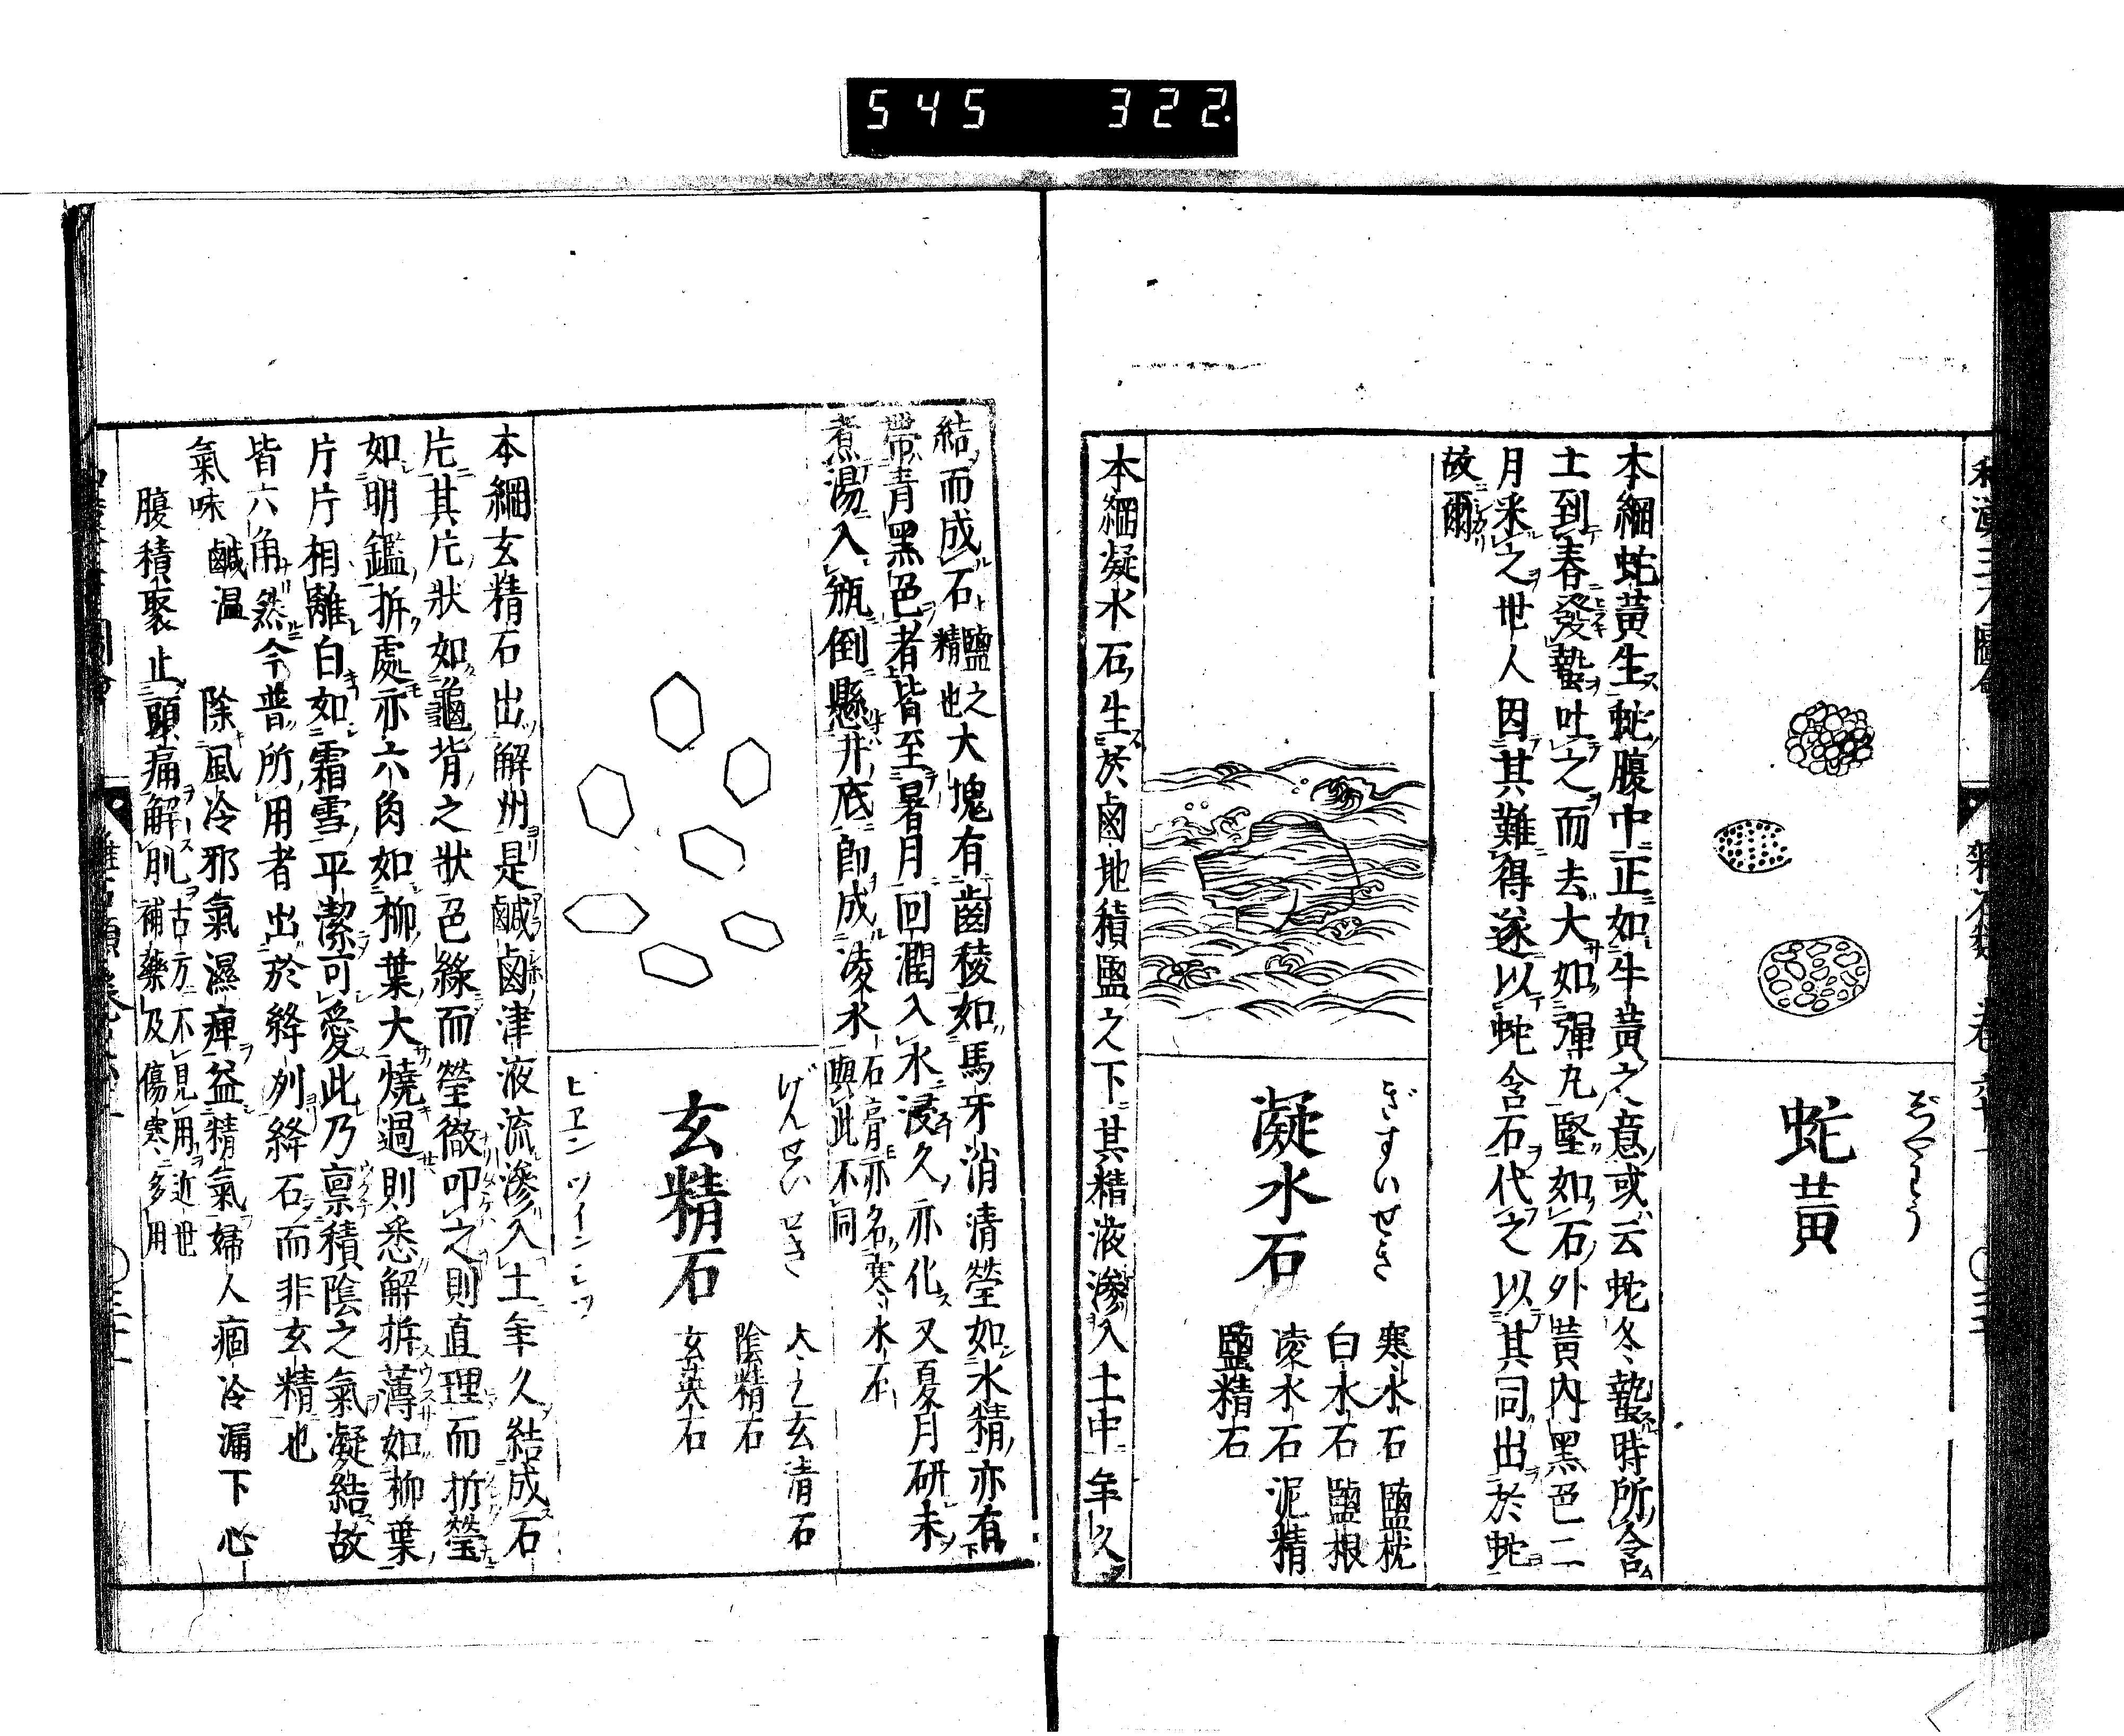 545 322
蛇黄
本綱蛇黄生蛇腹中正如牛黄之意或云蛇冬蟄時所含
土到春發蟄吐之而去大如彈丸堅如石外黄内黒色二
月采之世人因其難得遂以蛇含石代之以其同出於蛇
故爾
ぎすいせき
凝水石
寒水石 鹽枕
白水石 鹽根
凌水石 泥精
鹽精石
本綱凝水石生於鹵地積鹽之下其精液滲入土中年久
結而成石鹽之精也大塊有齒稜如馬牙消清瑩如水精亦有
帶青黒色者皆至暑月回潤入水浸久亦化又夏月研末
煮湯入瓶倒懸井底即成凌水石膏亦名寒水石與此不同
げんせいせき
玄精石
ヒヱンツイン
太乙玄清石
陰精石
玄英石
本綱玄精石出解州是鹹鹵津液流滲入土年久結成石
片其片狀如龜背之狀色綠而瑩徹叩之則直理而折瑩
如明鑑拆處亦六角如柳葉大燒過則悉解拆薄如柳葉
片片相離白如霜雪平潔可愛此乃禀積陰之氣凝結故
皆六角然今普所用者出於絳列絳石而非玄精也
氣味 鹹温 除風冷邪氣濕痺益精氣婦人痼冷漏下心
腹積聚止頭痛解肌古方不見用近世補藥及傷寒多用